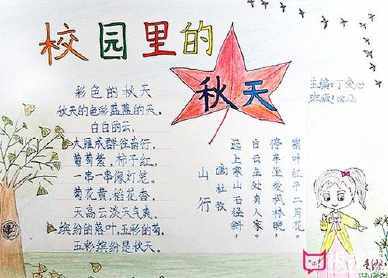 校园里的
秋天
彩色的秋天
秋天的色彩蓝蓝的天。
白白的云。
大雁成群往南行。
葡萄紫,柿子红,
一串一串像灯笼。
菊花黄,稻花香。
天高云淡天气爽。
缤纷的落叶,五彩的菊。
五彩缤纷是秋天。
山行
杜牧
远上寒山石径斜,
白云生处有人家。
停车坐爱枫林晚,
霜叶红于二月花。
主编:丁
班级: